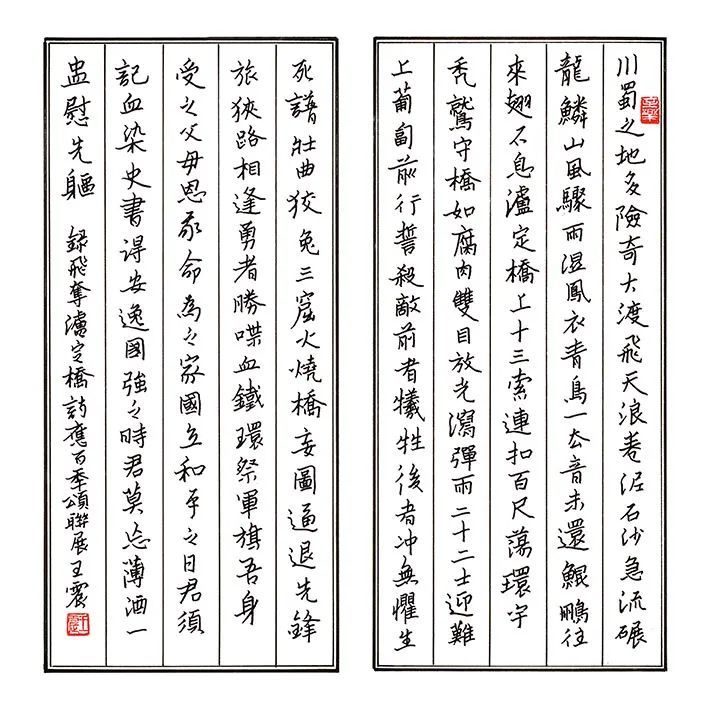 川蜀之地多險奇大渡飛天浪卷泥石沙急流碾
龍鱗山風驟雨湿鳳衣青鳥一去音未還鯤鵬往
來翅不息瀘定橋上十三索連扣百尺蕩環宇
禿鷲守橋如腐肉雙目放光瀉彈雨二十二士迎難
上葡匐前行誓殺敵前者犧牲後者冲無懼生
死譜壯曲狡兔三窟火燒橋妄圖逼退先鋒
旅狹路相逢勇者勝喋血鐵環祭軍旗吾身
受之父母恩承命為之家國立和平之日君須
記血染史書得安逸國強之時君莫忘薄酒一
盅慰先軀 録飛奪瀘定橋詩應百年頌聯展王震